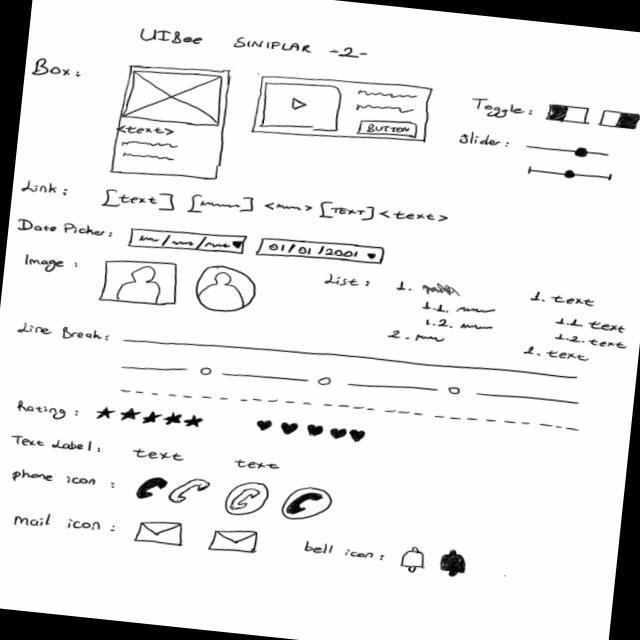 UIBee SINIFLAR -2-
Box:
<text>
BUTTON
Toggle:
Slider:
Link: [text] [TEXT] <text>
Date Picker: 01/01/2001
Image:
List: 1. 1. text
1.1. 1.1 text
1.2. 1.2. text
2. 2. text
Line Break:
Rating:
Text Label: text text
phone icon :
mail icon :
bell icon: